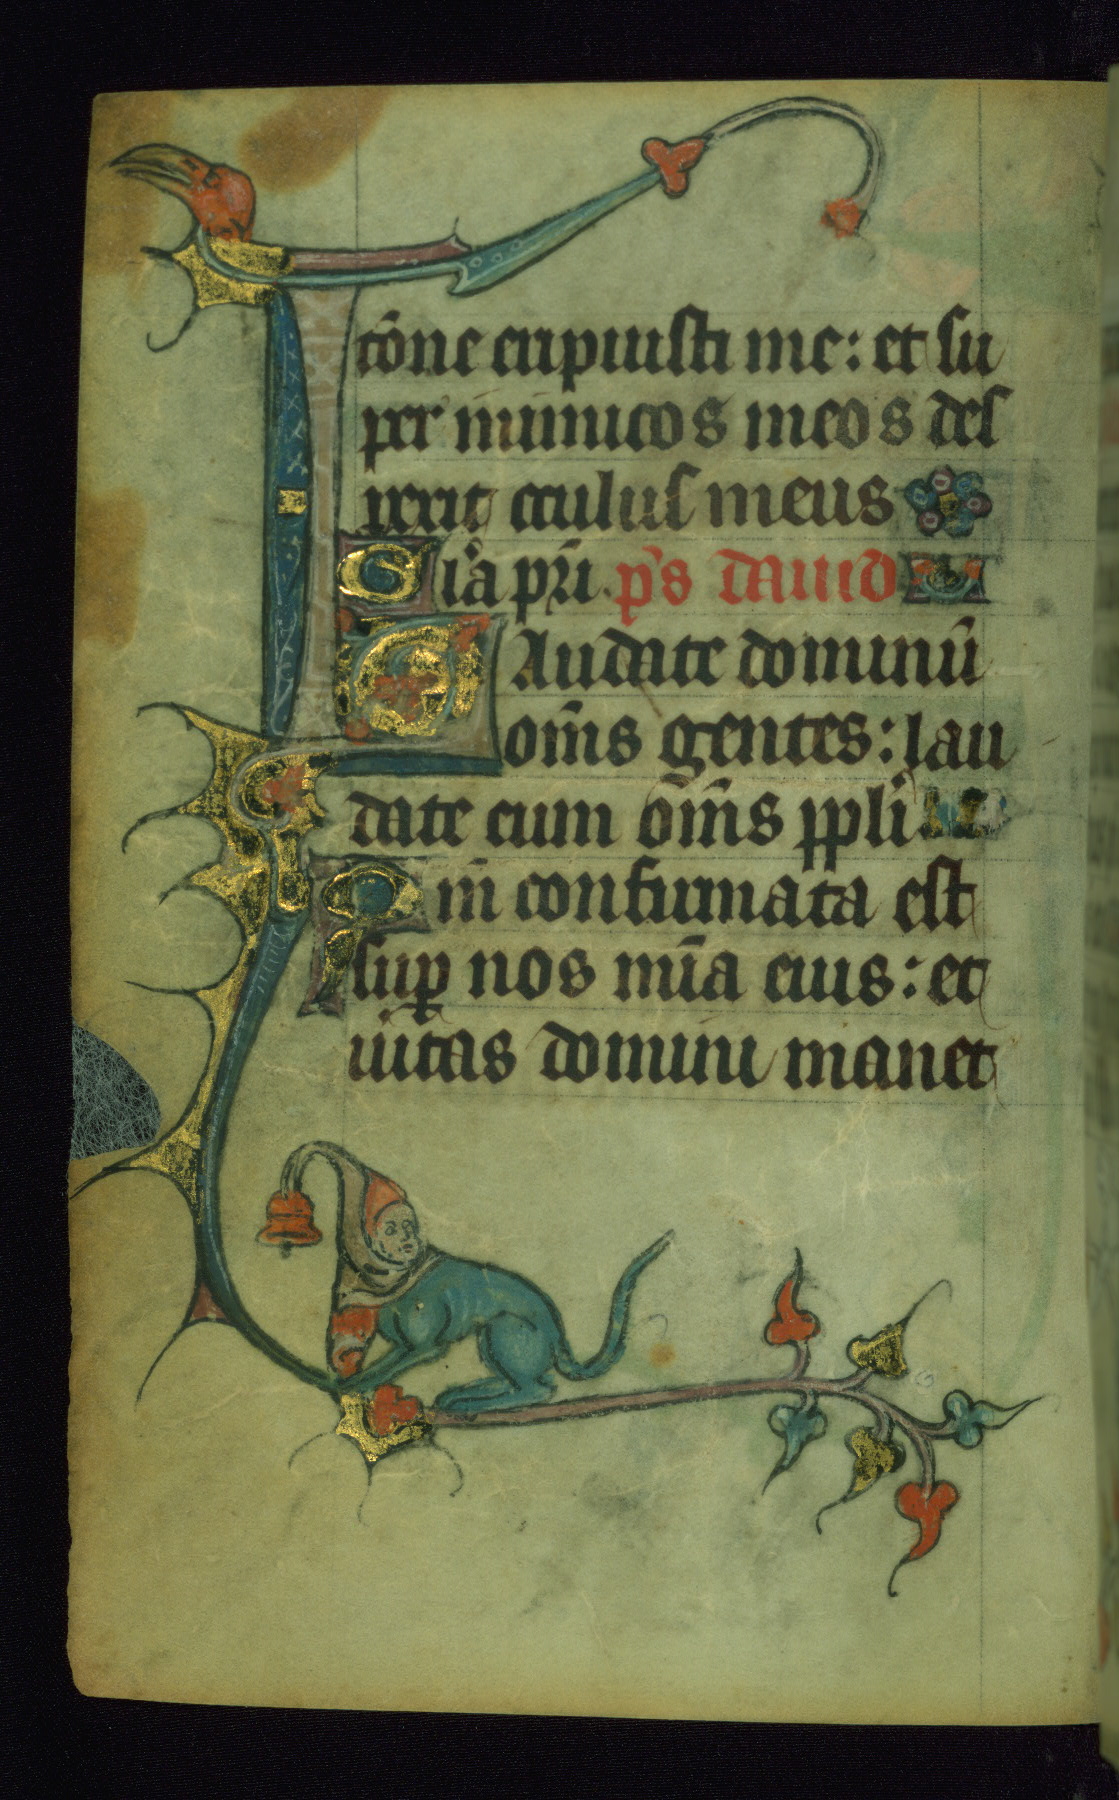 cōne eripuisti me: et su
per inimicos meos des
pexit oculus meus
Glā pr̄i. p̄s dauid
LAudate dominū
om̄s gentes: lau
date eum om̄s ppli
Qm̄ confirmata est
sup nos mīa eius: et
uītas domini manet